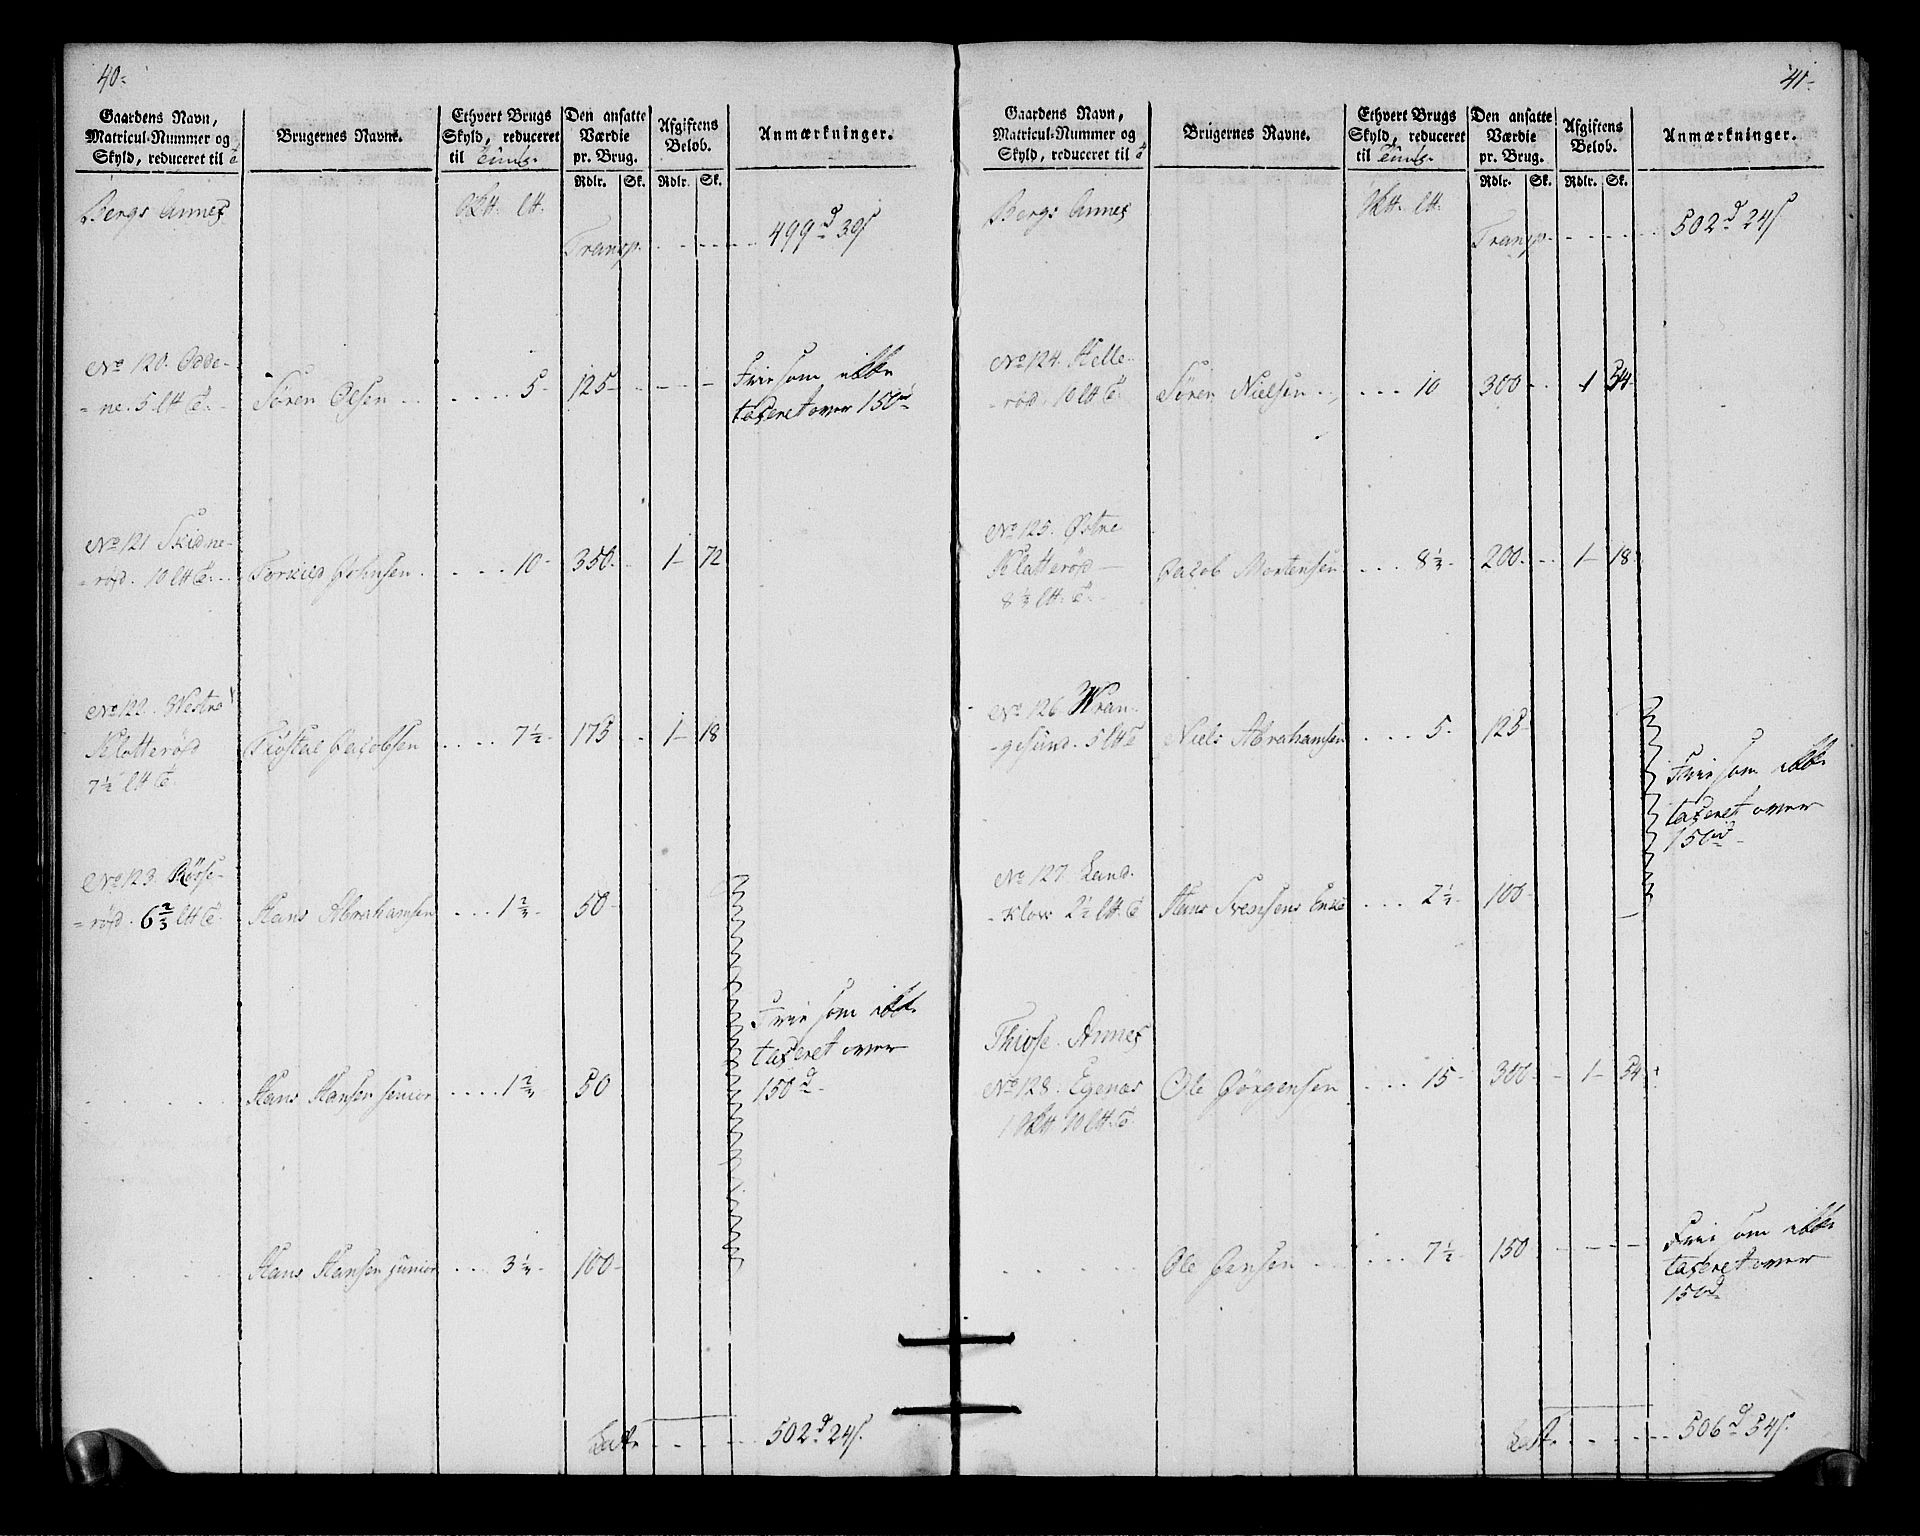 40-
Gaardens Navn,
Matricul-Nummer og
Skyld, reduceret til
Brugernes Navne.
Ethvert Brugs
Skyld, reduceret
til Tunge.
Den ansatte
Værdie
pr. Brug.
Rdlr. Sk.
Afgiftens
Beløb.
Rdlr. Sk.
Anmærkninger.
Bergs Annex
Transp. 499 d 39 s
No 120. Odde-
=ne. 5 Søren Olsen 5- 125-
Frie som ikke
taxeret over 150 d
No 121 Skidne-
=röd. 10 Torkild Johnsen 10- 350- 1- 72
No 122. Westre
Klatteröd Jacobsen 7½- 175 1- 18
7½
No 123. Rösse-
=röd. 6⅔ Hans Abrahamsen 1⅔- 50-
Hans Hansen senior 1⅔- 50
Frie som ikke
taxeret over
150 d
Hans Hansen junior 3⅓- 100-
Lat. 502 d 24 s.
41-
Gaardens Navn,
Matricul-Nummer og
Skyld, reduceret til
Brugernes Navne.
Ethvert Brugs
Skyld, reduceret
til Tunge.
Den ansatte
Værdie
pr. Brug.
Rdlr. Sk.
Afgiftens
Beløb.
Rdlr. Sk.
Anmærkninger.
Bergs Annex
Transp. 502 d 24 s
No 124. Helle-
-röd. 10 Søren Nielsen 10 300- 1 54-
No 125. Østre
Klatteröd Jacob Mortensen 8⅓- 200- 1- 18
8⅓
No 126 Wran-
-gesund. 5 Niels Abrahamsen 5- 125-
Frie som ikke
taxeret over
150 d
No 127. Land-
-klov 2½ Hans Svensens Enke 2½- 100
Thiose Annex
No 128. Egenæs Ole Jörgensen 15- 300- 1- 54
1 10
Ole Jensen 7½- 150
Frie som ikke
taxeret over
150 d
Lat. 506 d 54 s.